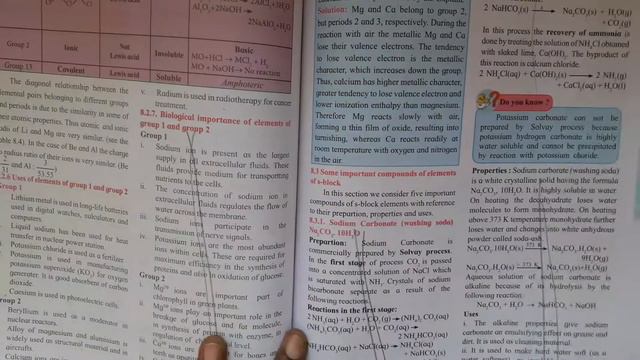 Al₂O₃+2NaOH→
2NaAlO₂+H₂O
Group 2 Ionic Not Lewis acid Insoluble
Basic
MO+HCl → MCl₂ + H₂
MO + NaOH→ No reaction
Group 13 Covalent Lewis acid Soluble Amphoteric
The diagonal relationship between the
pairs belonging to different groups
and periods is due to the similarity in some of
atomic properties. Thus atomic and ionic
radii of Li and Mg are very similar, (see the
8.4). In the case of Be and Al the charge
radius ratio of their ions is very similar. (Be
2/31 and Al 3/53.5)
8.2.6 Uses of elements of group 1 and group 2
Lithium metal is used in long-life batteries
used in digital watches, calculators and
computers.
Liquid sodium has been used for heat
transfer in nuclear power station.
Potassium chloride is used as a fertilizer.
Potassium is used in manufacturing
potassium superoxide (KO₂) for oxygen
generator. It is good absorbent of carbon
dioxide.
Caesium is used in photoelectric cells.
Group 2
Beryllium is used as a moderator in
nuclear reactors.
Alloy of magnesium and aluminium is
widely used as structural material and in
aircrafts.
v. Radium is used in radiotherapy for cancer
treatment.
8.2.7. Biological importance of elements of
group 1 and group 2
Group 1
i. Sodium ion is present as the largest
supply in all extracellular fluids. These
fluids provide medium for transporting
nutrients to the cells.
ii. The concentration of sodium ion in
extracellular fluids regulates the flow of
water across the membrane.
iii. Sodium ions participate in the
transmission of nerve signals.
iv. Potassium ions are the most abundant
ions within cells. These are required for
maximum efficiency in the synthesis of
proteins and also in oxidation of glucose.
Group 2
i. Mg²⁺ ions are important part of
chlorophyll in green plants.
ii. Mg²⁺ ions play an important role in the
breakage of glucose and fat molecule,
in synthesis of proteins with enzyme, in
regulation of level.
Solution: Mg and Ca belong to group 2,
but periods 2 and 3, respectively. During
the reaction with air the metallic Mg and Ca
lose their valence electrons. The tendency
to lose valence electron is the metallic
character, which increases down the group.
Thus, calcium has higher metallic character,
greater tendency to lose valence electron and
lower ionization enthalpy than magnesium.
Therefore Mg reacts slowly with air,
forming a thin film of oxide, resulting into
turnishing, whereas Ca reacts readily at
room temperature with oxygen and nitrogen
in the air.
8.3 Some important compounds of elements
of s-block
In this section we consider five important
compounds of s-block elements with reference
to their prepartion, properties and uses.
8.3.1. Sodium Carbonate (washing soda)
Na₂CO₃. 10H₂O
Prepartion: Sodium Carbonate is
commercially prepared by Solvay process.
In the first stage of process CO₂ is passed
into a concentrated solution of NaCl which
is saturated with NH₃. Crystals of sodium
bicarbonate separate as a result of the
following reactions.
Reactions in the first stage:
2 NH₃(aq) + H₂O + CO₂(g) → (NH₄)₂ CO₃(aq)
(NH₄)₂ CO₃(aq) + H₂O + CO₂(g) →
2 NH₄HCO₃(aq)
NH₄HCO₃(aq) + NaCl(aq) → NH₄Cl(aq) +
NaHCO₃(s)
2 NaHCO₃(s) → Na₂CO₃(s) + H₂O(g)
+ CO₂(g)
In this process the recovery of ammonia is
done by treating the solution of NH₄Cl obtained
with slaked lime, Ca(OH)₂. The byproduct of
this reaction is calcium chloride.
2 NH₄Cl(aq) + Ca(OH)₂(s) → 2 NH₃(g)
+ CaCl₂(aq) + H₂O(l)
Do you know ?
Potassium carbonate can not be
prepared by Solvay process because
potassium hydrogen carbonate is highly
water soluble and cannot be precipitated
by reaction with potassium choride.
Properties : Sodium carbonate (washing soda)
is a white crystalline solid having the formula
Na₂CO₃. 10H₂O. It is highly soluble in water.
On heating the decahydrate loses water
molecules to form monohydrate. On heating
above 373 K temperature monohydrate further
loses water and changes into white anhydrous
powder called soda-ash
Na₂CO₃.10H₂O(s) → Na₂CO₃.H₂O(s) +
9H₂O(g)
Na₂CO₃.H₂O(s) → Na₂CO₃(s)+H₂O(g)
Aqueous solution of sodium carbonate is
alkaline because of its hydrolysis by the
following reaction
Na₂CO₃ + H₂O → NaHCO₃ + NaOH
Uses
i. The alkaline properties give sodium
carbonate an emulsifying effect on grease and
dirt. It is used as cleaning material.
ii. It is used to make hard water soft (as a